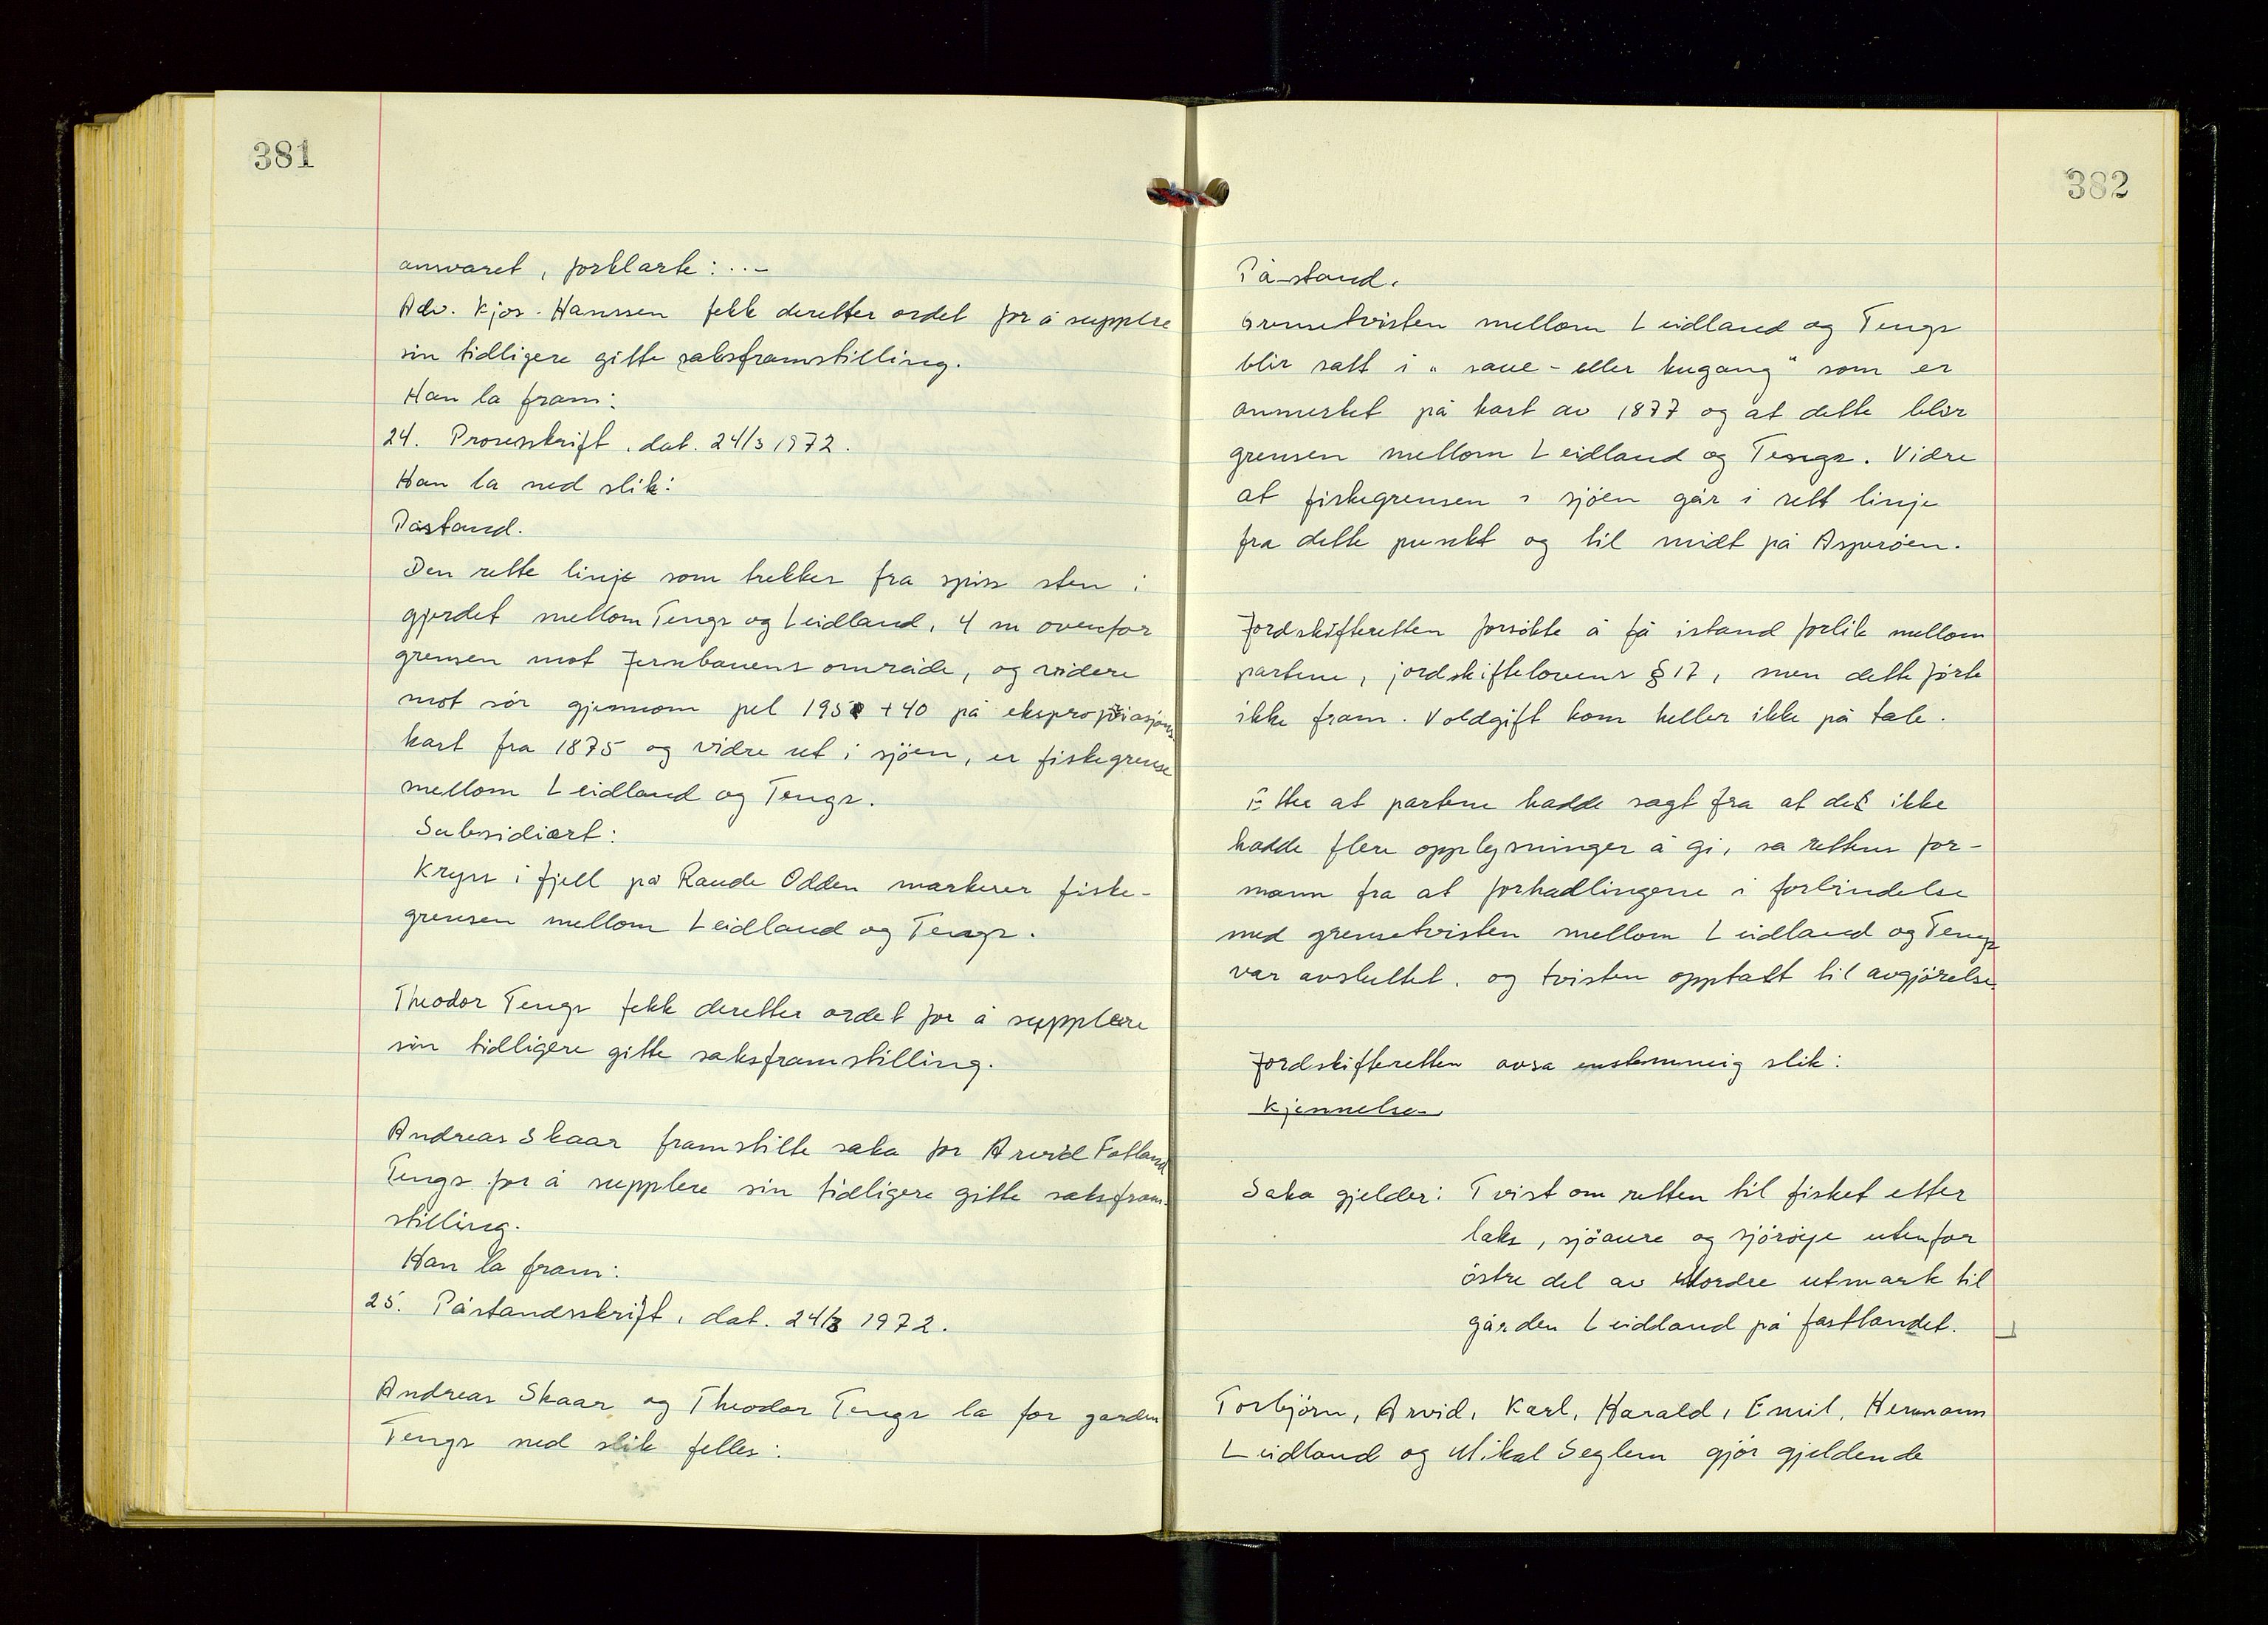 381
ansvaret, forklarte: ..-
Adv. Kjos-Hanssen fekk deretter ordet for å supplere
sin tidligere gitte saksframstilling.
Han la fram:
24. Prosesskrift, dat. 24/3 1972.
Han la ned slik:
Påstand.
Den rette linje som trekker fra spiss sten i
gjerdet mellom Tengs og Leidland, 4 m ovenfor
grensen mot Jernbanens område, og videre
mot sør gjennom pel 195 + 40 på ekspropriasjons
kart fra 1875 og vidre ut i sjöen, er fiskegrense
mellom Leidland og Tengs.
Subsidiært:
Kryss i fjell på Raude Odden markerer fiske-
grensen mellom Leidland og Tengs.
Theodor Tengs fekk deretter ordet for å supplere
sin tidligere gitte saksframstilling.
Andreas Skaar framstilte saka for Arvid Fotland
Tengs for å supplere sin tidligere gitte saksfram-
stilling.
Han la fram:
25. Påstandsskrift, dat. 24/3 1972.
Andreas Skaar og Theodor Tengs la for garden
Tengs ned slik felles:
382
Påstand.
Grensetvisten mellom Leidland og Tengs
blir satt i "saue- eller kugang" som er
anmerket på kart av 1877 og at dette blir
grensen mellom Leidland og Tengs. Vidre
at fiskegrensen i sjöen går i rett linje
fra dette punkt og til midt på Asperöen.
Jordskifteretten forsökte å få istand forlik mellom
partene, jordskiftelovens § 17, men dette förte
ikke fram. Voldgift kom heller ikke på tale.
Etter at partene hadde sagt fra at de ikke
hadde flere opplysninger å gi, sa rettens for-
mann fra at forhadlingene i forbindelse
med grensetvisten mellom Leidland og Tengs
var avsluttet, og tvisten opptatt til avgjörelse.
Jordskifteretten avsa enstemmig slik:
Kjennelse
Saka gjelder: Tvist om retten til fisket etter
laks, sjöaure og sjöröye utenfor
östre del av Nordre utmark til
gården Leidland på fastlandet.
Torbjörn, Arvid, Karl, Harald, Emil, Hermann
Leidland og Mikal Seglem gjör gjeldende